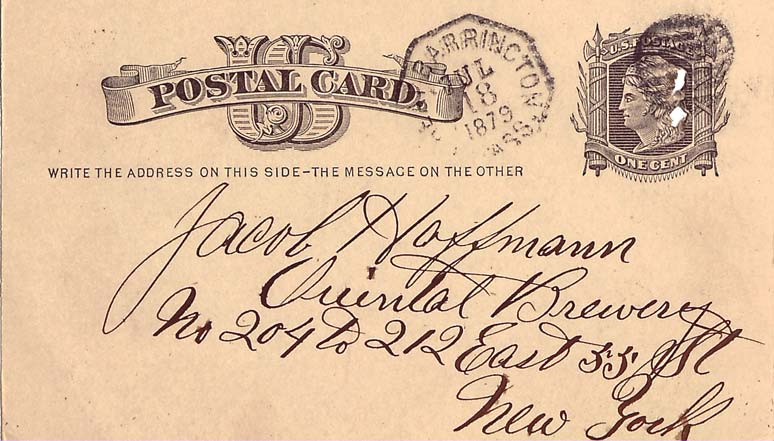 US
POSTAL CARD.
BARRINGTON
JUL
18
1879
MASS
U.S. POSTAGE
ONE CENT
WRITE THE ADDRESS ON THIS SIDE–THE MESSAGE ON THE OTHER
Jacob Hoffmann
Oriental Brewery
No 204 to 212 East 55 St
New York